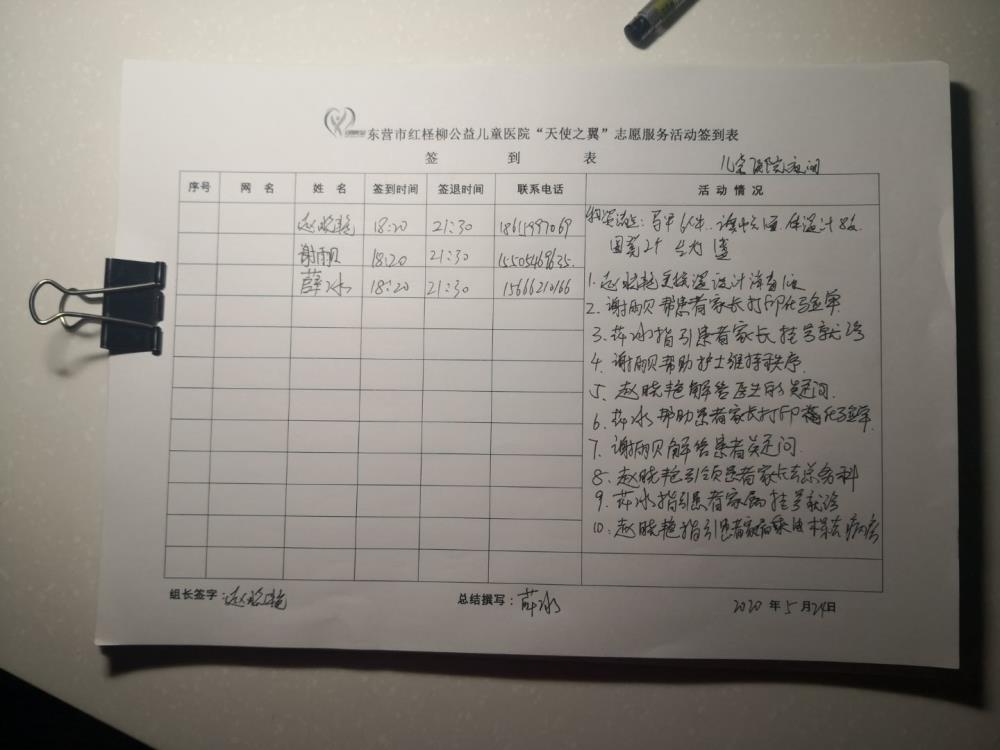 东营市红柽柳公益儿童医院“天使之翼”志愿服务活动签到表
签 到 表
儿童医院夜间
序号 网 名 姓 名 签到时间 签退时间 联系电话 活 动 情 况
赵晓艳 18:20 21:30 18611997069
谢丽贝 18:20 21:30 15505469635
薛冰 18:20 21:30 15666210166
物资清点:马甲 6件
1. 赵晓艳
2. 谢丽贝帮患者家长打印化验单
3. 薛冰指引患者家长挂号就诊
4. 谢丽贝帮助护士维持秩序
5. 赵晓艳解答 疑问
6. 薛冰帮助患者家长打印 化验单
7. 谢丽贝解答患者疑问
8. 赵晓艳引领患者家长去 科
9. 薛冰指引患者家属挂号就诊
10. 赵晓艳指引患者家属乘 梯去病房
组长签字:赵晓艳 总结撰写:薛冰 2020 年 5 月 24日